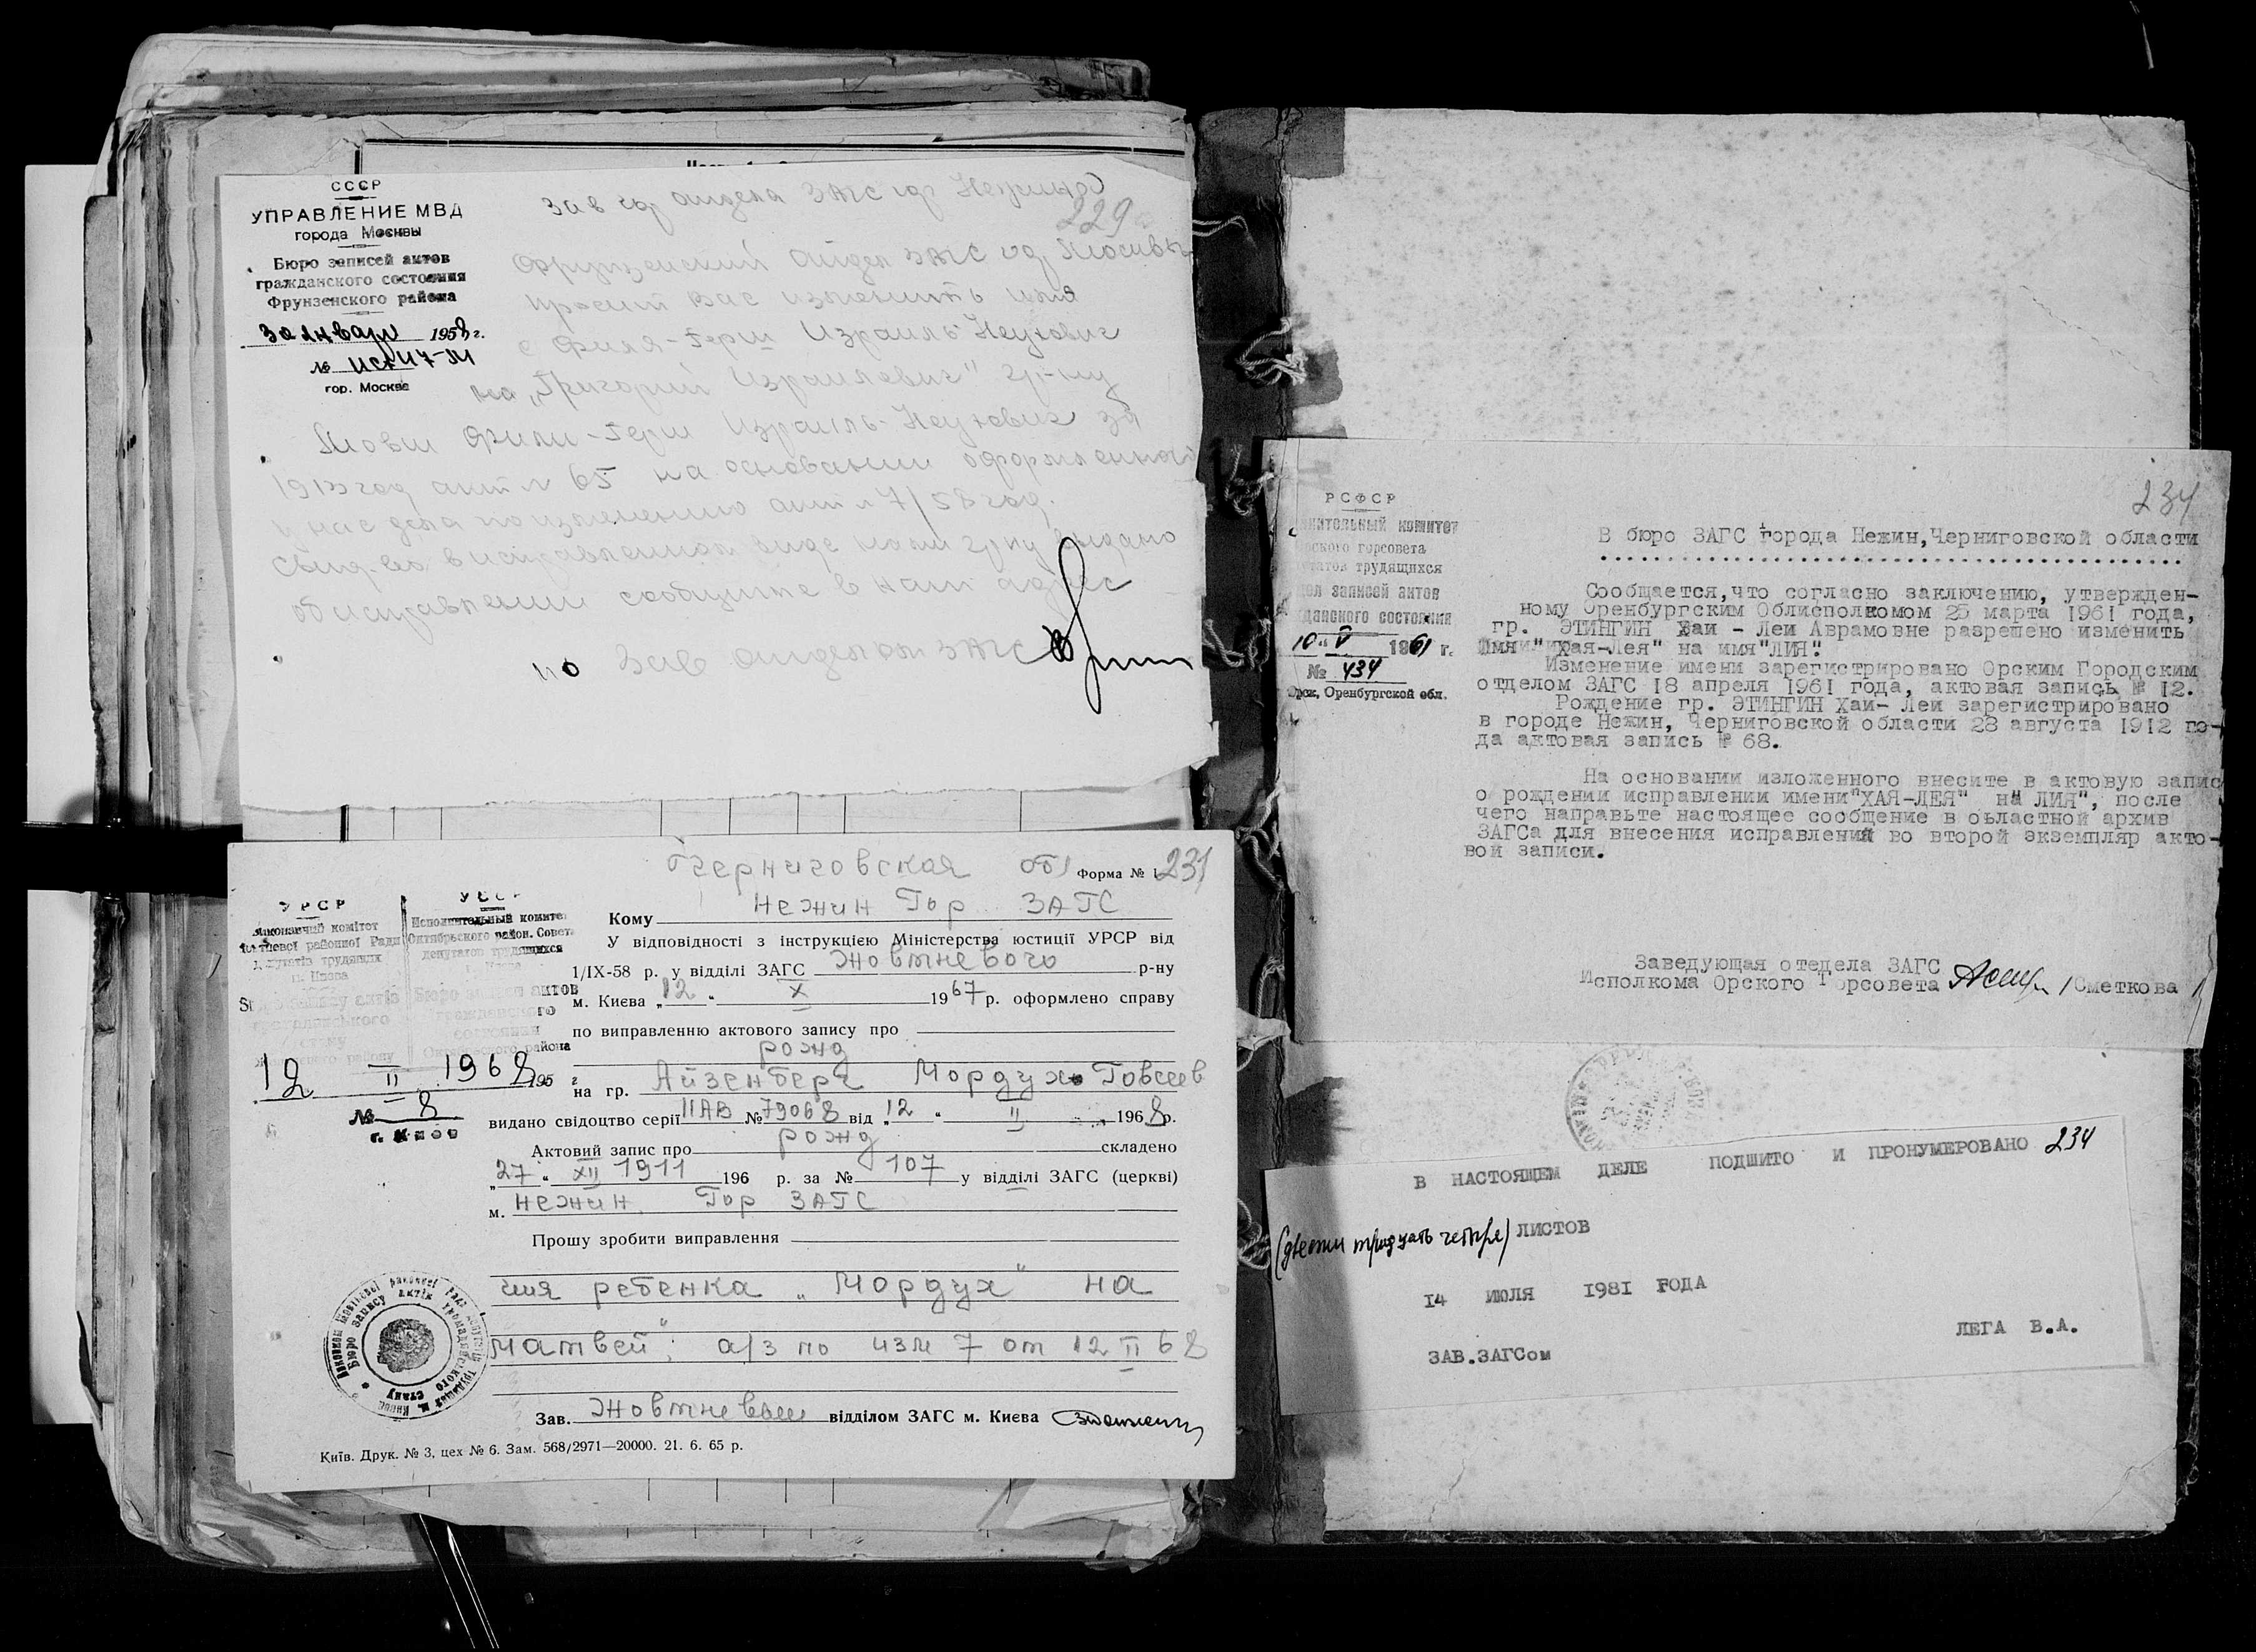 СССР
УПРАВЛЕНИЕ МВД
города Москвы
Бюро записей актов
гражданского состояния
Фрунзенского района
30 января 1958 г.
№
гор. Москва
Зав гор отдела ЗАГС гор Нежина
229
Фрунзенский отдел ЗАГС гор Москвы
просит вас изменить имя
с Филя-Герш Израиль-Неухович
на „Григорий Израилевич" гр-ну
Филя-Герш Израиль-Неухович за
1913 год акт № 65 на основании оформленного
у нас дела по изменению акт № 7/58 год.
Свид-во в исправленном виде выдано
об исправлении сообщите в наш адрес
Зав отделом ЗАГС
Черниговская обл
Форма № 1
231
УРСР
Виконавчий комітет
Жовтневої районної Ради
депутатів трудящих
м. Києва
УССР
Исполнительный комитет
Октябрьского район. Совета
депутатов трудящихся
г. Киева
Бюро записи актов
гражданского
состояния
Октябрьского района
12 II 1968 195 г
№ 8
г. Киев
Кому Нежин Гор ЗАГС
У відповідності з інструкцією Міністерства юстиції УРСР від
1/IX-58 р. у відділі ЗАГС Жовтневого р-ну
м. Києва „12" X 1967 р. оформлено справу
по виправленню актового запису про
рожд
на гр. Айзенберг Мордух Говшев
видано свідоцтво серії IIАВ № 79068 від „12" II 1968 р.
Актовий запис про рожд складено
„27" XII 1911 196 р. за № 107 у відділі ЗАГС (церкві)
м. Нежин Гор ЗАГС
Прошу зробити виправлення
имя ребенка „Мордух" на
„Матвей"; а/з по изм 7 от 12 II 68
Зав. Жовтневым відділом ЗАГС м. Києва
Київ. Друк. № 3, цех № 6. Зам. 568/2971—20000. 21. 6. 65 р.
234
РСФСР
нительный комитет
рского горсовета
утатов трудящихся
дел записей актов
данского состояния
10 " V 1961 г.
№ 434
Орск, Оренбургской обл.
В бюро ЗАГС города Нежин,Черниговской области
Сообщается,что согласно заключению, утвержден-
ному Оренбургским Облисполкомом 25 марта 1961 года,
гр. ЭТИНГИН Хаи - Леи Аврамовне разрешено изменить
имя "Хая-Лея" на имя"ЛИЯ".
Изменение имени зарегистрировано Орским Городским
отделом ЗАГС 18 апреля 1961 года, актовая запись № 12.
Рождение гр. ЭТИНГИН Хаи- Леи зарегистрировано
в городе Нежин, Черниговской области 28 августа 1912 го-
да актовая запись № 68.
На основании изложенного внесите в актовую запис
о рождении исправлении имени"ХАЯ-ЛЕЯ" на ЛИЯ", после
чего направьте настоящее сообщение в областной архив
ЗАГСа для внесения исправлений во второй экземпляр акто-
вой записи.
Заведующая отедела ЗАГС
Исполкома Орского Горсовета /Сметкова/
В НАСТОЯЩЕМ ДЕЛЕ ПОДШИТО И ПРОНУМЕРОВАНО 234
(двести тридцать четыре) ЛИСТОВ
14 ИЮЛЯ 1981 ГОДА
ЛЕГА В.А.
ЗАВ.ЗАГСом